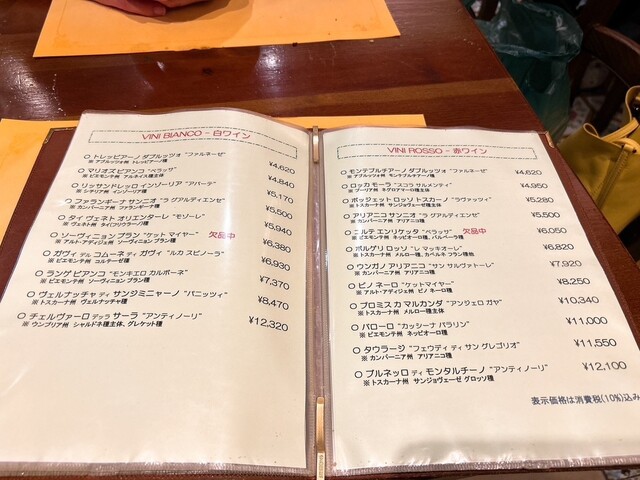 VINI BIANCO - 白ワイン
○ トレッビアーノ ダブルッツォ “ファルネーゼ” ¥4,620
※ アブルッツォ州 トレッビアーノ種
○ マリオズ ビアンコ “ベラッサ” ¥4,840
※ ピエモンテ州 アルネイス種主体
○ リッサンドレッロ インソーリア “アバーテ” ¥5,170
※ シチリア州 インソーリア種
○ ファランギーナ サンニオ “ラ グアルディエンセ” ¥5,500
※ カンパーニア州 ファランギーナ種
○ タイ ヴェネト オリエンターレ “モゾーレ” ¥5,940
※ ヴェネト州 タイ(フリウラーノ)種
○ ソーヴィニョン ブラン “ケット マイヤー” 欠品中 ¥6,380
※ アルト・アディジェ州 ソーヴィニョン ブラン種
○ ガヴィ デル コムーネ ディ ガヴィ “ルカ スピノーラ” ¥6,930
※ ピエモンテ州 コルテーゼ種
○ ランゲ ビアンコ “モンキエロ カルボーネ” ¥7,370
※ ピエモンテ州 ソーヴィニョン ブラン種
○ ヴェルナッチャ ディ サンジミニャーノ “パニッツィ” ¥8,470
※ トスカーナ州 ヴェルナッチャ種
○ チェルヴァーロ デッラ サーラ “アンティノーリ” ¥12,320
※ ウンブリア州 シャルドネ種主体、グレケット種
VINI ROSSO - 赤ワイン
○ モンテプルチアーノ ダブルッツォ “ファルネーゼ” ¥4,620
※ アブルッツォ州 モンテプルチアーノ種
○ ロッカ モーラ “スコラ サルメンティ” ¥4,950
※ プーリア州 ネグロアマーロ種主体
○ ポッジェット ロッソ トスカーノ “ラヴァッツィ” ¥5,280
※ トスカーナ州 サンジョヴェーゼ種主体
○ アリアニコ サンニオ “ラ グアルディエンセ” ¥5,500
※ カンパーニア州 アリアニコ種
○ ニルテ エンリケッタ “ベラッサ” 欠品中 ¥6,050
※ ピエモンテ州 ネッビオーロ種、バルベーラ種
○ ボルゲリ ロッソ “レ マッキオーレ” ¥6,820
※ トスカーナ州 メルロー種、カベルネ フラン種他
○ ウンガノ アリアニコ “サン サルヴァトーレ” ¥7,920
※ カンパーニア州 アリアニコ種
○ ピノ ネーロ “ケットマイヤー” ¥8,250
※ アルト・アディジェ州 ピノ ネーロ種
○ プロミス カ マルカンダ “アンジェロ ガヤ” ¥10,340
※ トスカーナ州 メルロー種主体
○ バローロ “カッシーナ バラリン” ¥11,000
※ ピエモンテ州 ネッビオーロ種
○ タウラージ “フェウディ ディ サン グレゴリオ” ¥11,550
※ カンパーニア州 アリアニコ種
○ ブルネッロ ディ モンタルチーノ “アンティノーリ” ¥12,100
※ トスカーナ州 サンジョヴェーゼ グロッソ種
表示価格は消費税(10%)込み